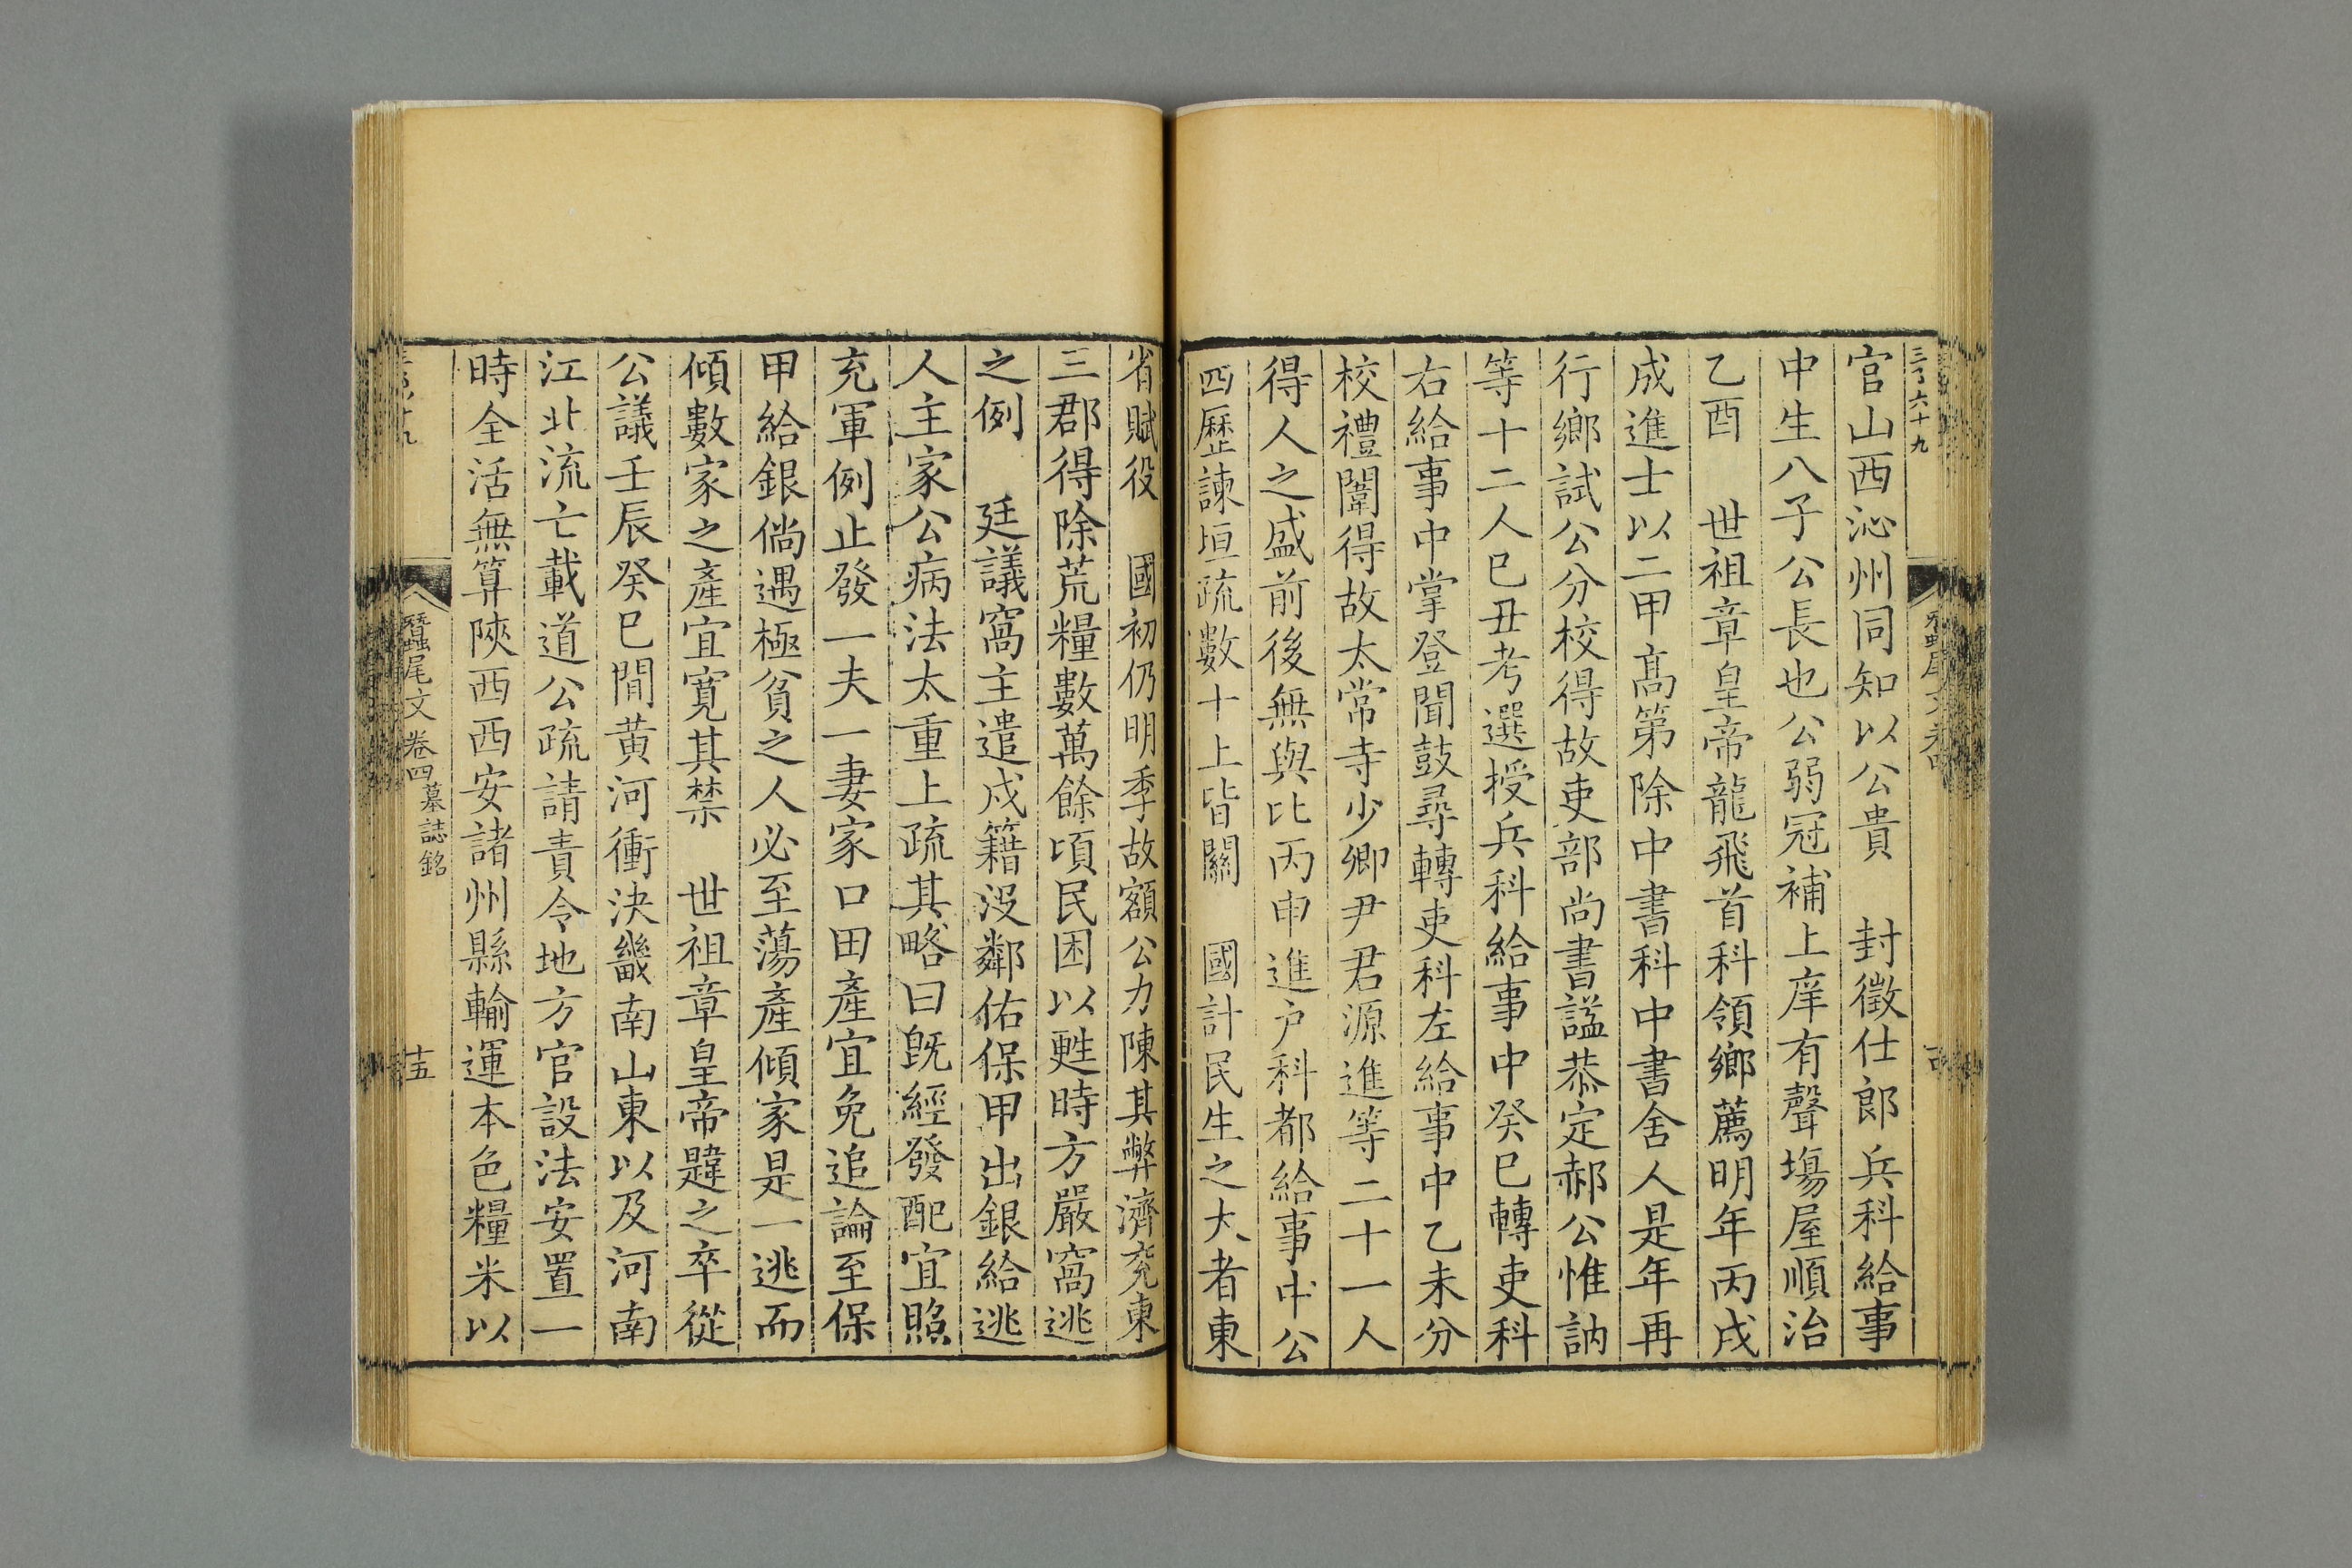 官山西沁州同知以公貴　封徵仕郎兵科給事
中生八子公長也公弱冠補上庠有聲塲屋順治
乙酉　世祖章皇帝龍飛首科領鄉薦明年丙戌
成進士以二甲高第除中書科中書舍人是年再
行鄉試公分校得故吏部尚書謚恭定郝公惟訥
等十二人巳丑考選授兵科給事中癸巳轉吏科
右給事中掌登聞鼓尋轉吏科左給事中乙未分
校禮闈得故太常寺少卿尹君源進等二十一人
得人之盛前後無與比丙申進户科都給事中公
四歷諫垣疏數十上皆關　國計民生之大者東
省賦役　國初仍明季故額公力陳其弊濟兖東
三郡得除荒糧數萬餘頃民困以甦時方嚴窩逃
之例　廷議窩主遣戍籍没鄰佑保甲出銀給逃
人主家公病法太重上疏其略曰旣經發配宜照
充軍例止發一夫一妻家口田產宜免追論至保
甲給銀倘遇極貧之人必至蕩產傾家是一逃而
傾數家之產宜寬其禁　世祖章皇帝韙之卒從
公議壬辰癸巳間黄河衝決畿南山東以及河南
江北流亡載道公疏請責令地方官設法安置一
時全活無算陜西西安諸州縣輸運本色糧米以
蠶尾文　卷四　墓誌銘
十五